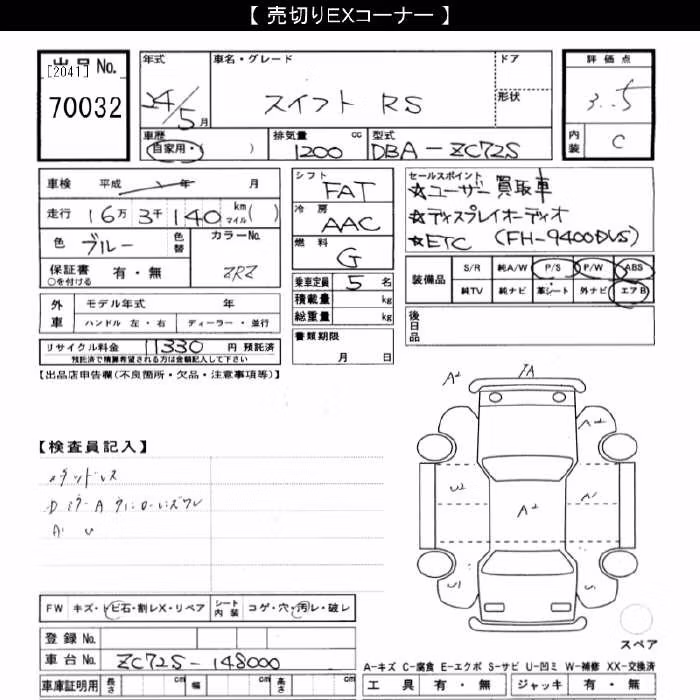 【 売切りEXコーナー 】
出品 No.
[2041]
70032
年式
24/5 月
車名・グレード
スイフト RS
ドア
形状
評価点
3.5
内装
C
車歴
自家用・( )
排気量 cc
1200
型式
DBA-ZC72S
車検 平成 年 月
走行 16万 3千 140 km マイル ( )
色 ブルー
色替
カラーNo.
ZRZ
保証書 有・無
○を付ける
外車
モデル年式 年
ハンドル 左・右
ディーラー・並行
リサイクル料金 11330 円 預託済
預託済で積算希望される方は金額記入して下さい
シフト
FAT
冷房
AAC
燃料
G
乗車定員 5 名
積載量 kg
総重量 kg
書類期限
月 日
セールスポイント
☆ユーザー買取車
☆ディスプレイオーディオ
☆ETC (FH-9400DVS)
装備品
S/R 純A/W P/S P/W ABS
純TV 純ナビ 革シート 外ナビ エアB
後日品
【出品店申告欄(不良箇所・欠品・注意事項等)】
【検査員記入】
A2
A2
A2
FW キズ・トビ石・割レX・リペア
シート内装
コゲ・穴・汚レ・破レ
登録 No.
車台 No. ZC72S-148000
車庫証明用
長さ cm
幅 cm
高さ cm
スペア
A-キズ C-腐食 E-エクボ S-サビ U-凹ミ W-補修 XX-交換済
工具 有・無
ジャッキ 有・無